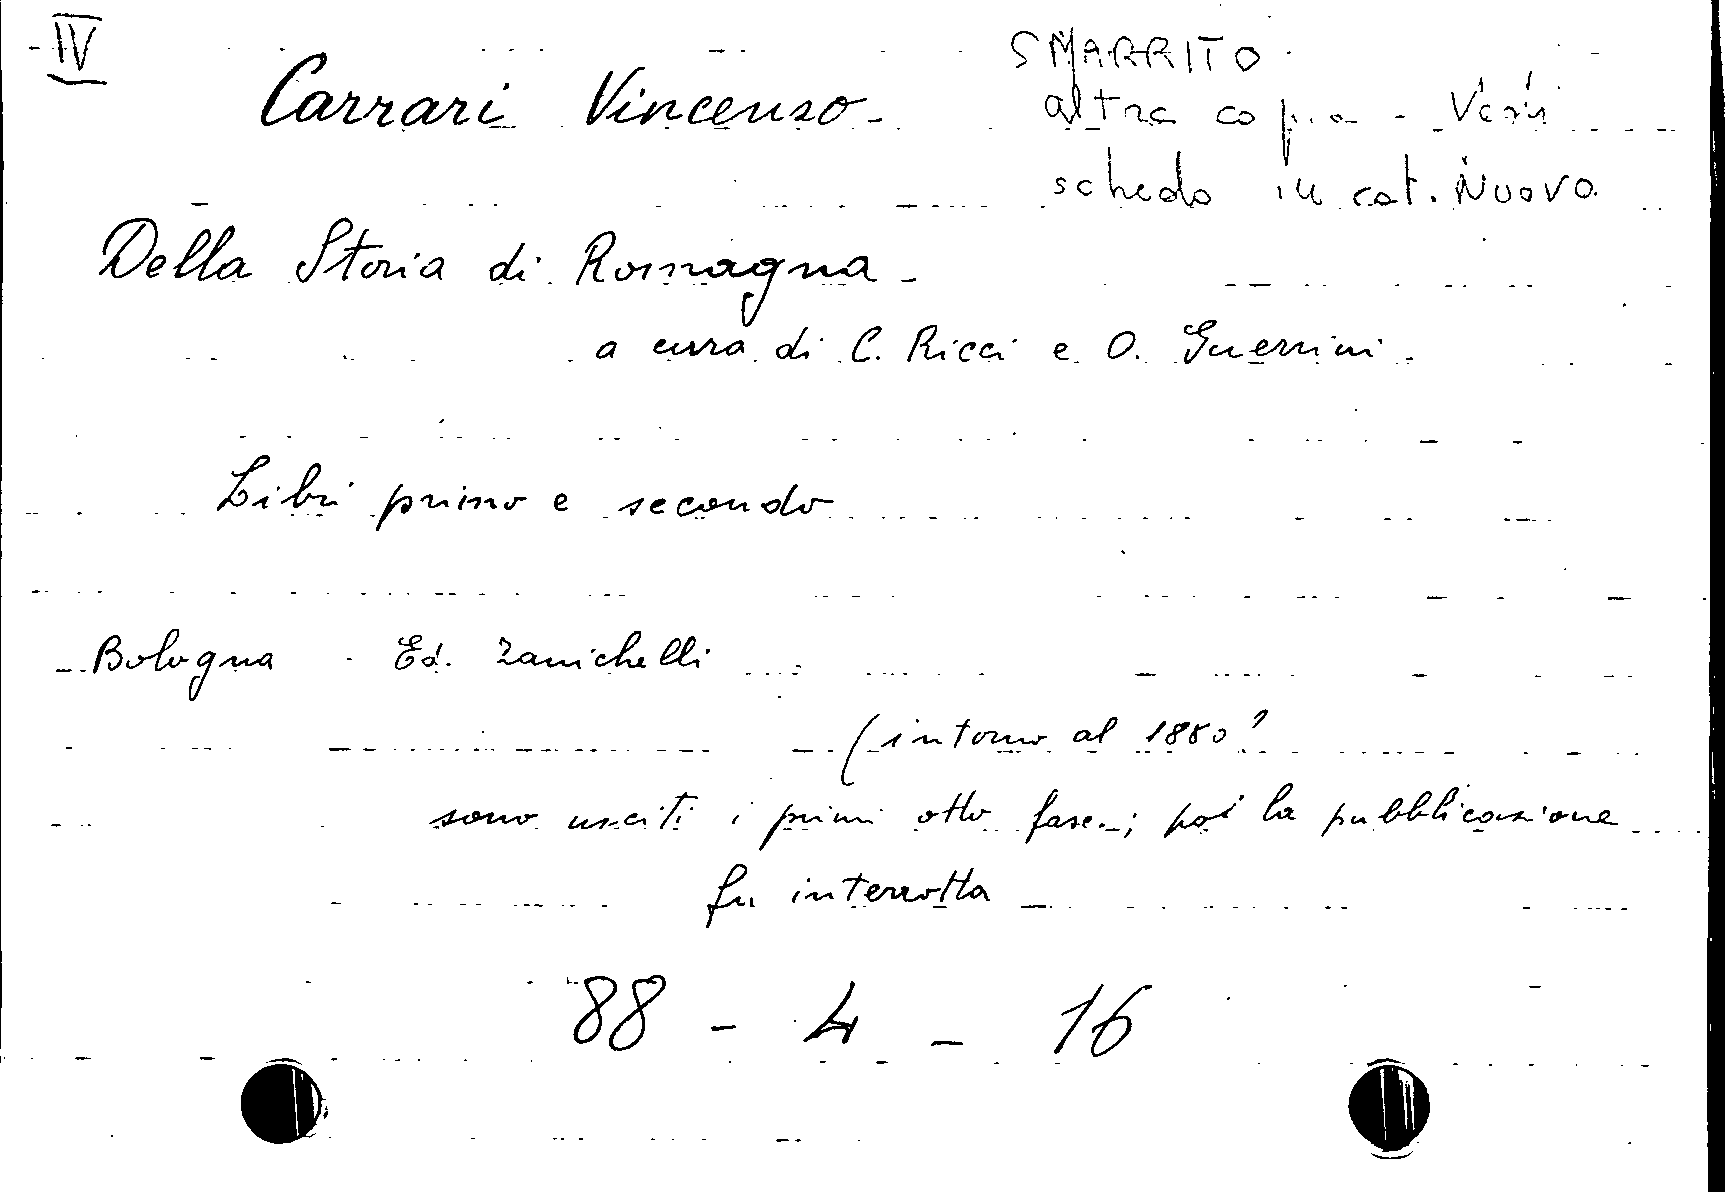 IV
Carrari Vincenzo -
SMARRITO
altra copia - Vedi
scheda in cat. Nuovo
Della Storia di Romagna -
a cura di C. Ricci e O. Guerrini -
Libri primo e secondo
Bologna - Ed. Zanichelli
(intorno al 1880?
sono usciti i primi otto fasc.; poi la pubblicazione
fu interrotta
88 - 4 - 16